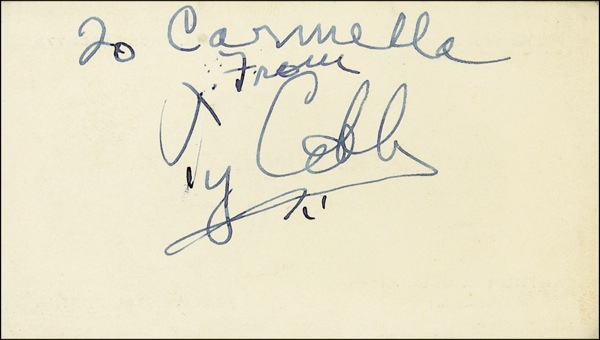 To Carmella
From
Ty Cobb